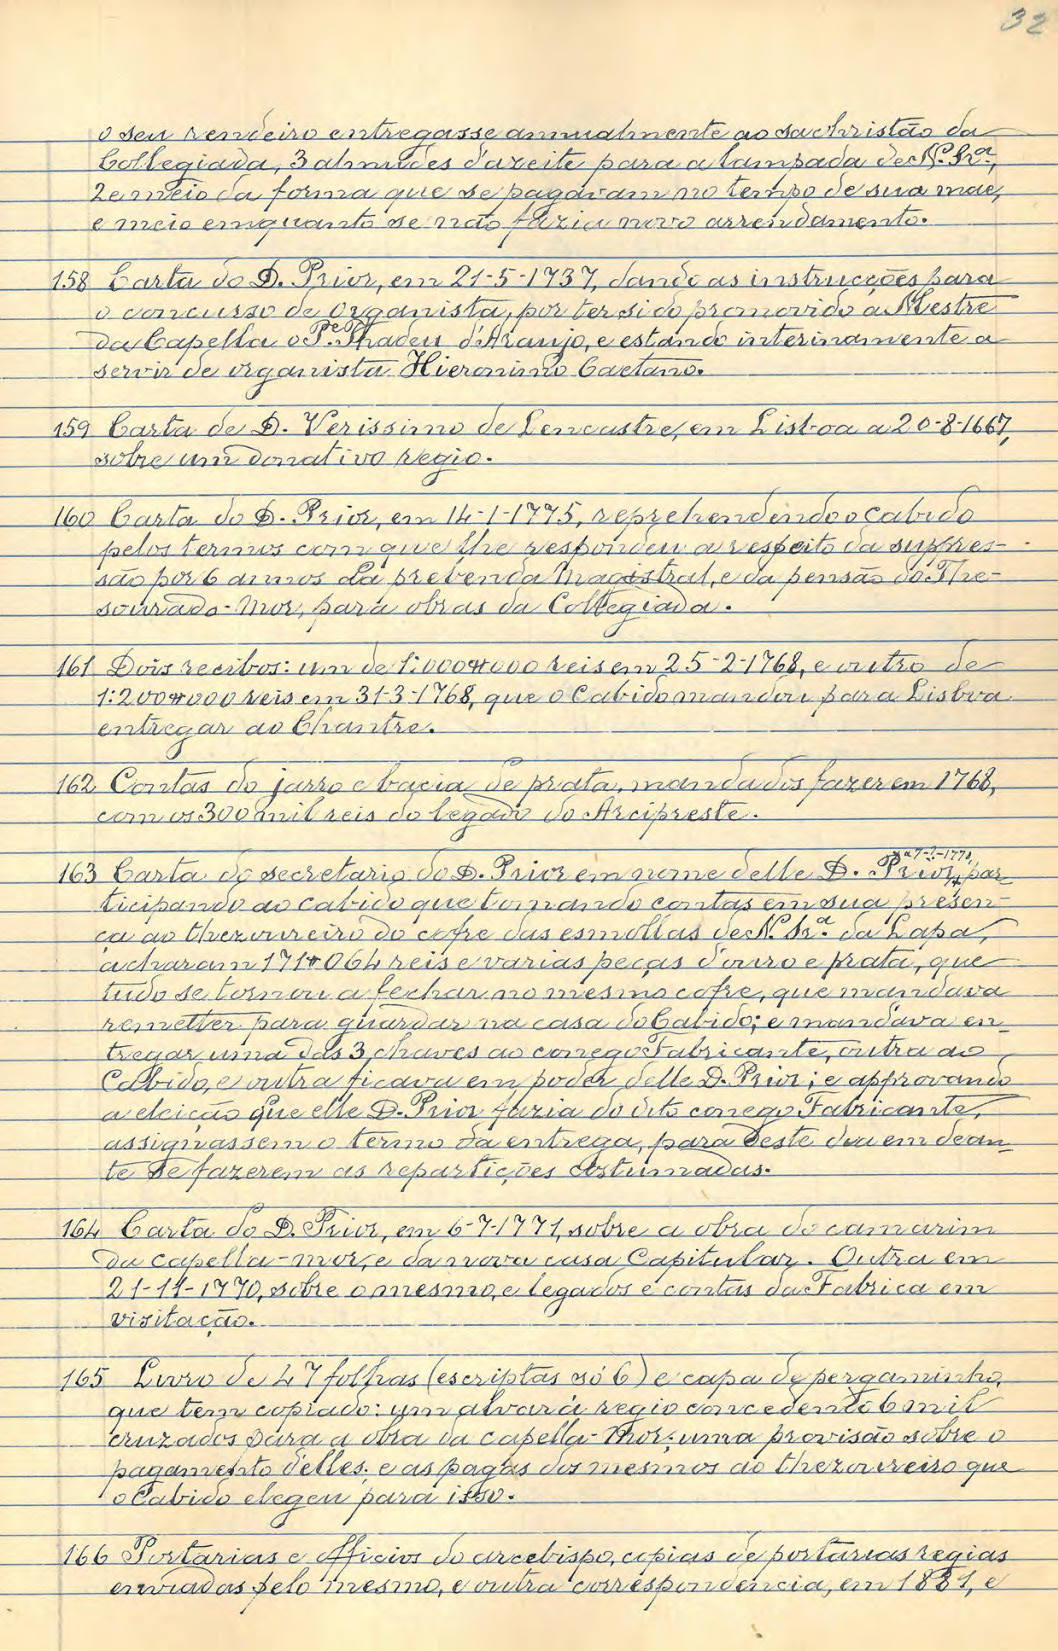 32
o seu rendeiro entregasse annualmente ao sachristão da
Collegiada, 3 almudes d'azeite para a lampada de N. Sr.ª,
2 e meio da forma que se pagavam no tempo de sua mãe,
e meio emquanto se não fazia novo arrendamento.
158 Carta do D. Prior, em 21-5-1737, dando as instrucções para
o concurso de organista, por ter sido promovido a Mestre
da Capella o P.e Thadeu d'Araujo, e estando interinamente a
servir de organista Hieronimo Caetano.
159 Carta de D. Verissimo de Lencastre, em Lisboa a 20-8-1667,
sobre um donativo regio.
160 Carta do D. Prior, em 14-1-1775, reprehendendo o Cabido
pelos termos com que lhe respondeu a respeito da suppres-
são por 6 annos da prebenda Magistral, e da pensão do The-
sourado-Mor, para obras da Collegiada.
161 Dois recibos: um de 1:000#000 reis em 25-2-1768, e outro de
1:200#000 reis em 31-3-1768, que o Cabido mandou para Lisboa
entregar ao Chantre.
162 Contas do jarro e bacia de prata, mandados fazer em 1768,
com os 300 mil reis do legado do Arcipreste.
163 Carta do secretario do D. Prior em nome delle D. Prior, par-
ticipando ao cabido que tomando contas em sua presen-
ça ao thezoureiro do cofre das esmollas de N. Sr.ª da Lapa,
acharam 171#064 reis e varias peças d'ouro e prata, que
tudo se tornou a fechar no mesmo cofre, que mandava
remetter para guardar na casa do Cabido; e mandava en-
tregar uma das 3 chaves ao conego Fabricante, outra ao
Cabido, e outra ficava em poder delle D. Prior; e approvando
a eleição que elle D. Prior fazia do dito conego Fabricante,
assignassem o termo da entrega, para deste dia em dean-
te se fazerem as repartições costumadas.
164 Carta do D. Prior, em 6-7-1771, sobre a obra do camarim
da capella-mor, e da nova casa Capitular. Outra em
21-11-1770, sobre o mesmo, e legados e contas da Fabrica em
visitação.
165 Livro de 47 folhas (escriptas só 6) e capa de pergaminho,
que tem copiado: um alvará regio concedendo 6 mil
cruzados para a obra da capella-Mor; uma provisão sobre o
pagamento d'elles; e as pagas dos mesmos ao thezoureiro que
o Cabido elegeu para isso.
166 Portarias e officios do arcebispo, copias de portarias regias
enviadas pelo mesmo, e outra correspondencia, em 1881, e